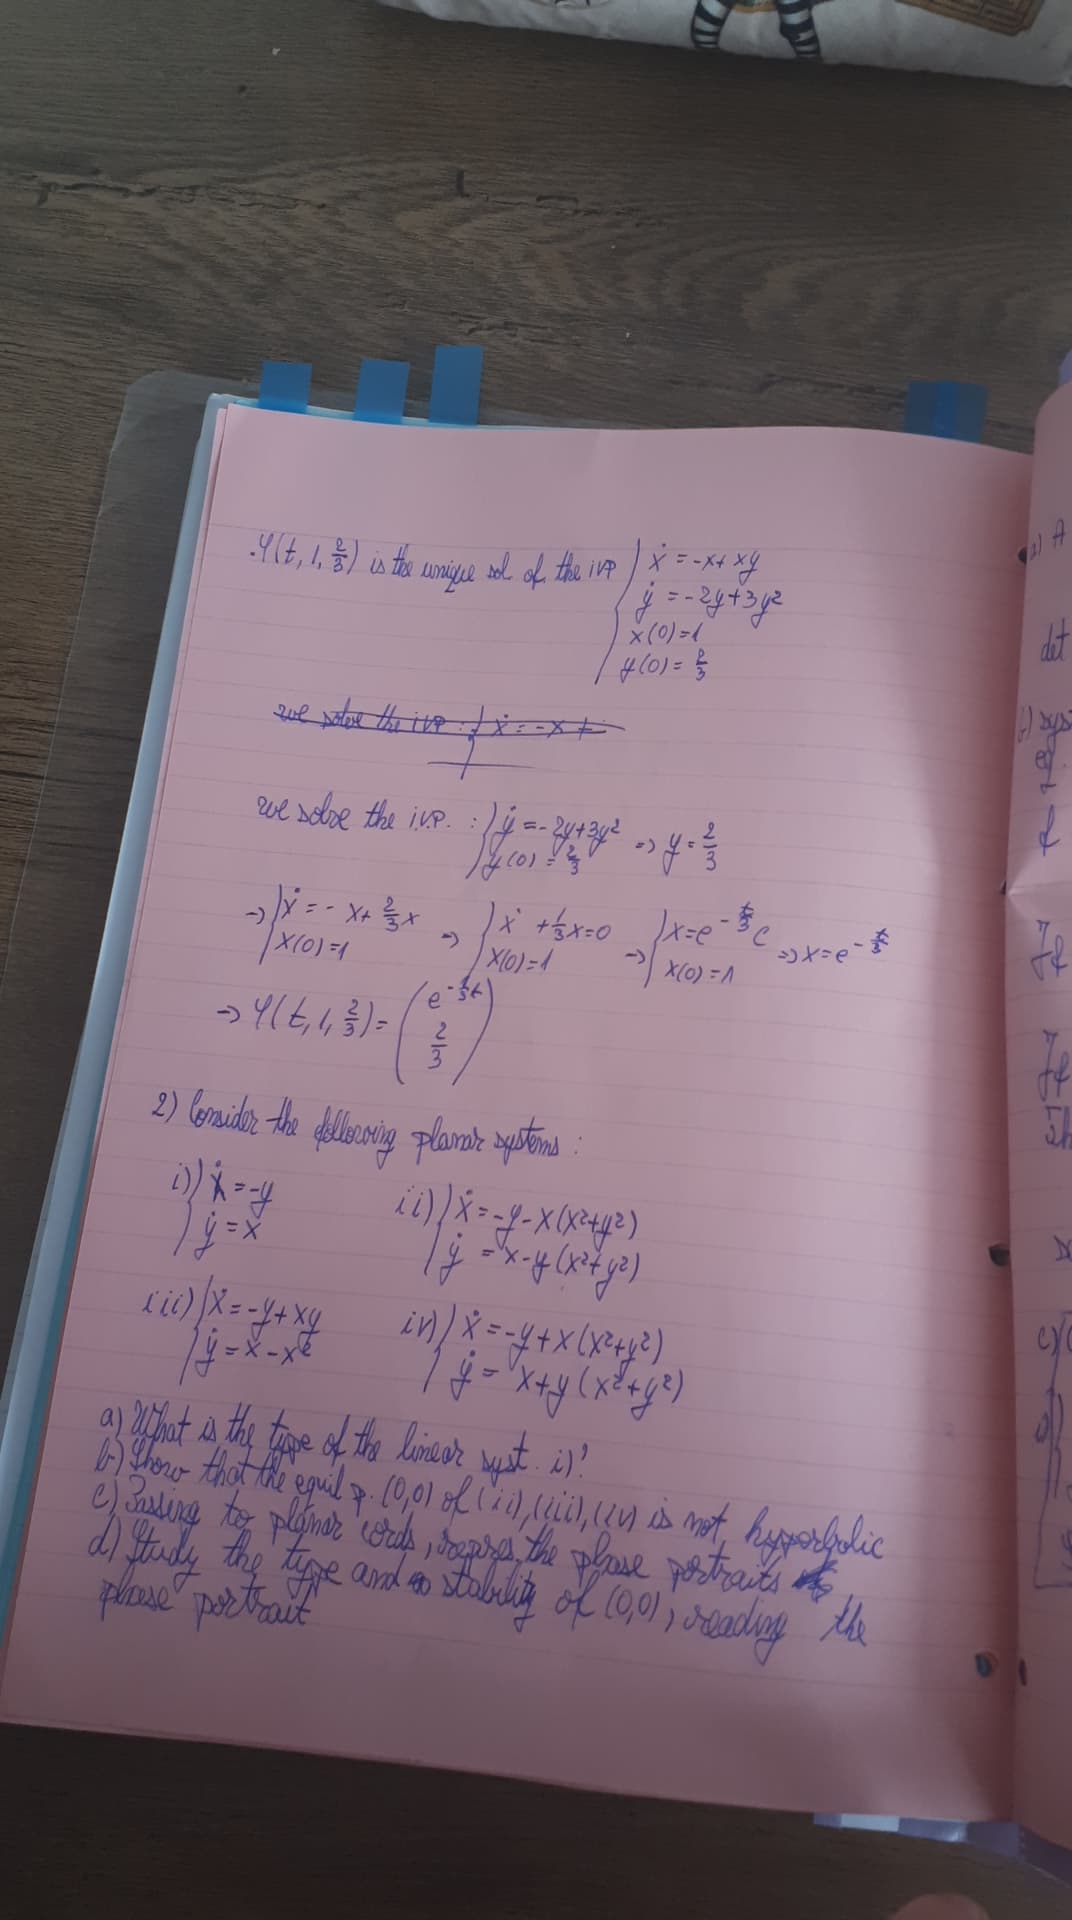 .φ(t, 1, 2/3) is the unique sol of the IVP { ẋ = -x + xy
ẏ = -2y + 3y²
x(0) = 1
y(0) = 2/3
we solve the i.V.P. : { ẋ = -x +
we solve the i.V.P. : { ẏ = -2y + 3y² => y = 2/3
y(0) = 2/3
=> { ẋ = -x + 2/3 x => { ẋ + 1/3 x = 0 => { x = e^(-t/3) c => x = e^(-t/3)
x(0) = 1 x(0) = 1 x(0) = 1
=> φ(t, 1, 2/3) = ( e^(-1/3 t)
2/3 )
2) Consider the following planar systems :
i) { ẋ = -y ii) { ẋ = -y - x(x²+y²)
ẏ = x ẏ = x - y(x²+y²)
iii) { ẋ = -y + xy iv) { ẋ = -y + x(x²+y²)
ẏ = x - x² ẏ = x + y(x²+y²)
a) What is the type of the linear syst. i)?
b) Show that the equil p. (0,0) of (ii), (iii), (iv) is not hyperbolic
c) Passing to planar cords, the phase portraits
d) Study the type and stability of (0,0), reading the
phase portrait
a) A
det
b) syst
eq.
f
Jf
Jf
c)